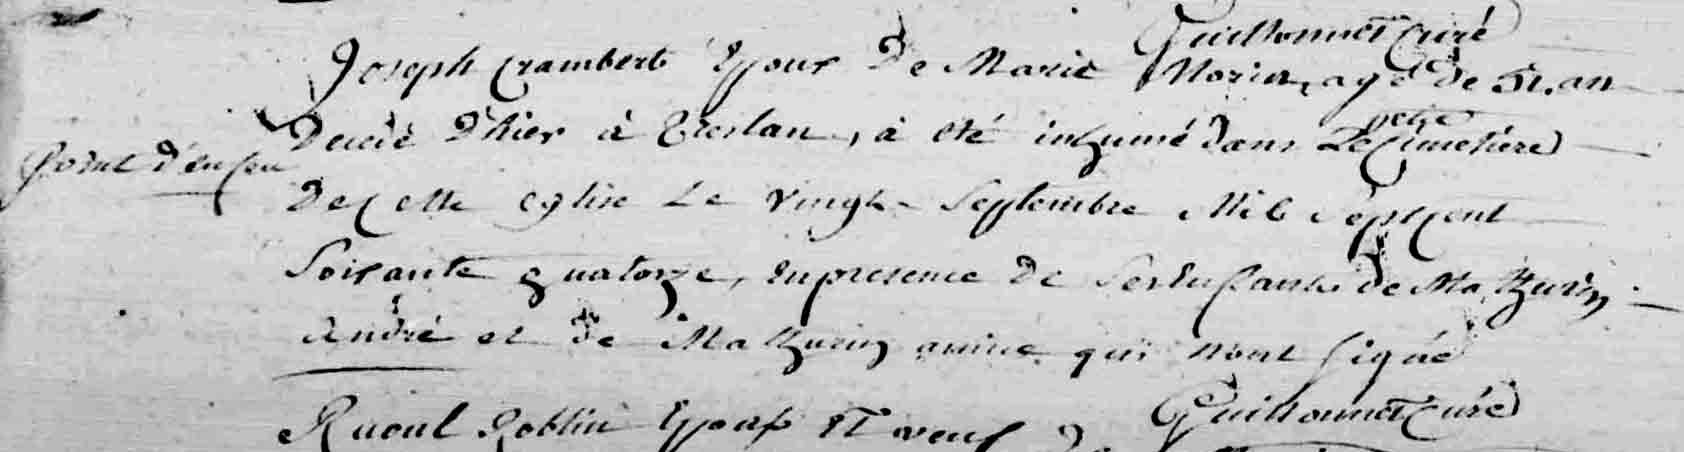 Guillonnet Curé
Joseph Crambert Epoux De Marie Morin, agé de 51. an
Decedé D'hier à Treslan, à eté inhumé Dans Le petit Cimetiére
point d'enfeu
De Cette Eglise Le vingt Septembre Mil Sept Cent
Soixante quatorze, en presence De Ses Enfants de Mathurin
André et de Mathurin qui n'ont signé
Guillonnet Curé
Raoul Roblin Epoux Et veuf